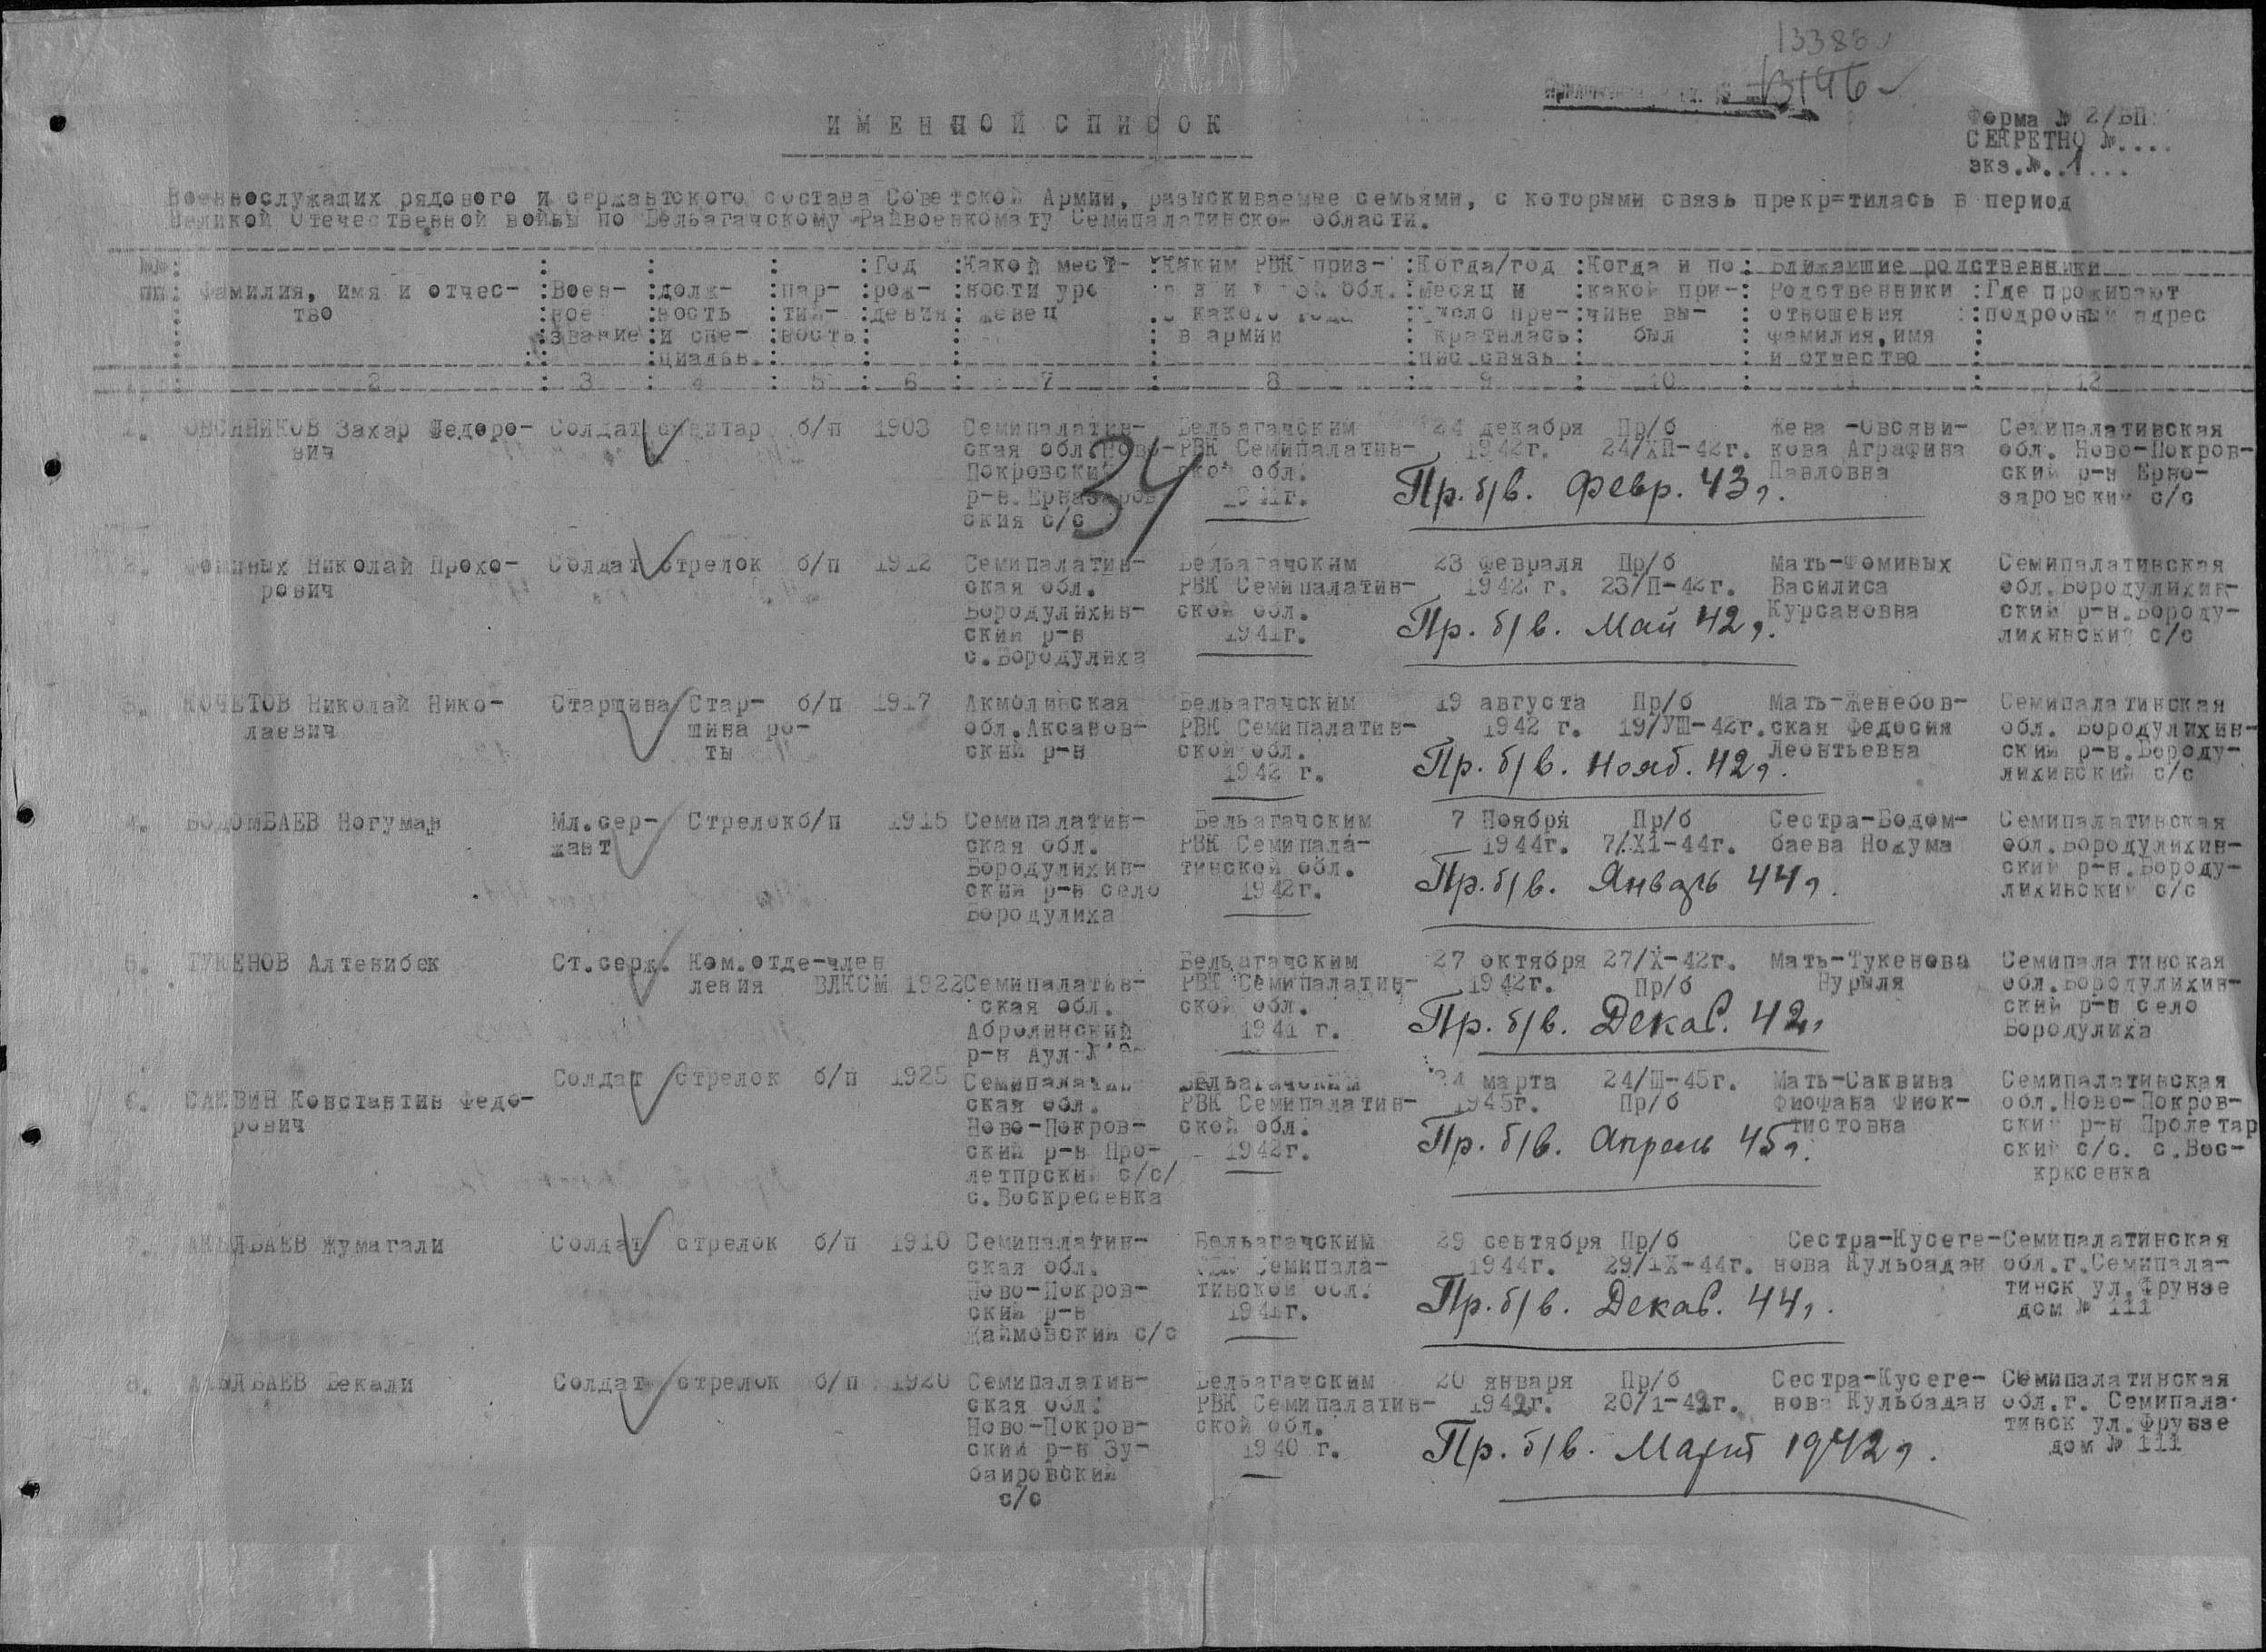 13383
13146
ИМЕННОЙ СПИСОК
Форма № 2/БП
СЕКРЕТНО №....
экз.№..1...
Военнослужащих рядового и сержантского состава Советской Армии, разыскиваемые семьями, с которыми связь прекр=тилась в период
Великой Отечественной войны по Бельагачскому Райвоенкомату Семипалатинской области.
№№ пп
Фамилия, имя и отчес-
тво
Воен-
ное
звание
долж-
ность
и спе-
циальн.
пар-
тий-
ность
Год
рож-
дения
Какой мест-
ности уро
женец
Каким РВК приз-
обл.
с какого года
в армии
Когда/год
месяц и
число пре-
кратилась
пис.связь
Когда и по
какой при-
чине вы-
был
Ближайшие родственники
Родственники
отношения
фамилия, имя
и отчество
Где проживают
подробный адрес
1 2 3 4 5 6 7 8 9 10 11 12
1. ОВСЯННИКОВ Захар Федоро-
вич
Солдат санитар б/п 1903
Семипалатин-
ская обл.Ново-
Покровский
р-н.Ерназаров
ския с/с
34
Бельагачским
РВК Семипалатин-
ской обл.
1941г.
24 декабря
1942г.
Пр/б
24/ХП-42г.
Жена -Овсяни-
кова Аграфина
Павловна
Семипалатинская
обл. Ново-Покров-
ский р-н Ерно-
заровский с/с
Пр. б/в. Февр. 43г.
2. ФОМИНЫХ Николай Прохо-
рович
Солдат стрелок б/п 1912
Семипалатин-
ская обл.
Бородулихин-
ский р-н
с.Бородулиха
Бельагачским
РВК Семипалатин-
ской обл.
1941г.
23 февраля
1942 г.
Пр/б
23/П-42г.
Мать-Фоминых
Василиса
Курсановна
Семипалатинская
обл.Бородулихин-
ский р-н.Бороду-
лихинский с/с
Пр. б/в. Май 42г.
3. КОЧЕТОВ Николай Нико-
лаевич
Старшина Стар-
шина ро-
ты
б/п 1917
Акмолинская
обл.Аксанов-
ский р-н
Бельагачским
РВК Семипалатин-
ской обл.
1942 г.
19 августа
1942 г.
Пр/б
19/УШ-42г.
Мать-Женебов-
ская Федосия
Леонтьевна
Семипалатинская
обл. Бородулихин-
ский р-н.Бороду-
лихинский с/с
Пр. б/в. Нояб. 42г.
4. БОДОМБАЕВ Ногуман
Мл.сер-
жант
Стрелок б/п 1915
Семипалатин-
ская обл.
Бородулихин-
ский р-н село
Бородулиха
Бельагачским
РВК Семипала-
тинской обл.
1942г.
7 Ноября
1944г.
Пр/б
7/Х1-44г.
Сестра-Бодом-
баева Ножума
Семипалатинская
обл.Бородулихин-
ский р-н.Бороду-
лихинский с/с
Пр. б/в. Январь 44г.
5. ТУКЕНОВ Алтенибек
Ст.серж. Ком.отде-
ления
член
ВЛКСМ 1922
Семипалатин-
ская обл.
Абролинский
р-н Аул
Бельагачским
РВК Семипалатин-
ской обл.
1941 г.
27 октября
1942г.
27/Х-42г.
Пр/б
Мать-Тукенова
Нурыля
Семипалатинская
обл.Бородулихин-
ский р-н село
Бородулиха
Пр. б/в. Декаб. 42г.
6. САКВИН Константин Федо-
рович
Солдат стрелок б/п 1925
Семипалатин
ская обл.
Ново-Покров-
ский р-н Про-
летпрский с/с/
с.Воскресенка
Бельагачским
РВК Семипалатин-
ской обл.
1942г.
24 марта
1945г.
24/Ш-45г.
Пр/б
Мать-Саквина
Фиофана Фиок-
тистовна
Семипалатинская
обл.Ново-Покров-
ский р-н Пролетар
ский с/с. с.Вос-
крксенка
Пр. б/в. Апрель 45г.
7. АКЫЛБАЕВ Жумагали
Солдат стрелок б/п 1910
Семипалатин-
ская обл.
Ново-Покров-
ский р-н
Жаймовский с/с
Бельагачским
РВК Семипала-
тинской обл.
1941г.
29 сентября
1944г.
Пр/б
29/1Х-44г.
Сестра-Кусеге-
нова Кульбадан
Семипалатинская
обл.г.Семипала-
тинск ул.Фрунзе
дом № 111
Пр. б/в. Декаб. 44г.
8. АКЫЛБАЕВ Бекали
Солдат стрелок б/п 1920
Семипалатин-
ская обл.
Ново-Покров-
ский р-н Зу-
баировский
с/с
Бельагачским
РВК Семипалатин-
ской обл.
1940 г.
20 января
1942г.
Пр/б
20/1-42г.
Сестра-Кусеге-
нова Кульбадан
Семипалатинская
обл.г. Семипала-
тинск ул.Фрунзе
дом № 111
Пр. б/в. Март 1942г.